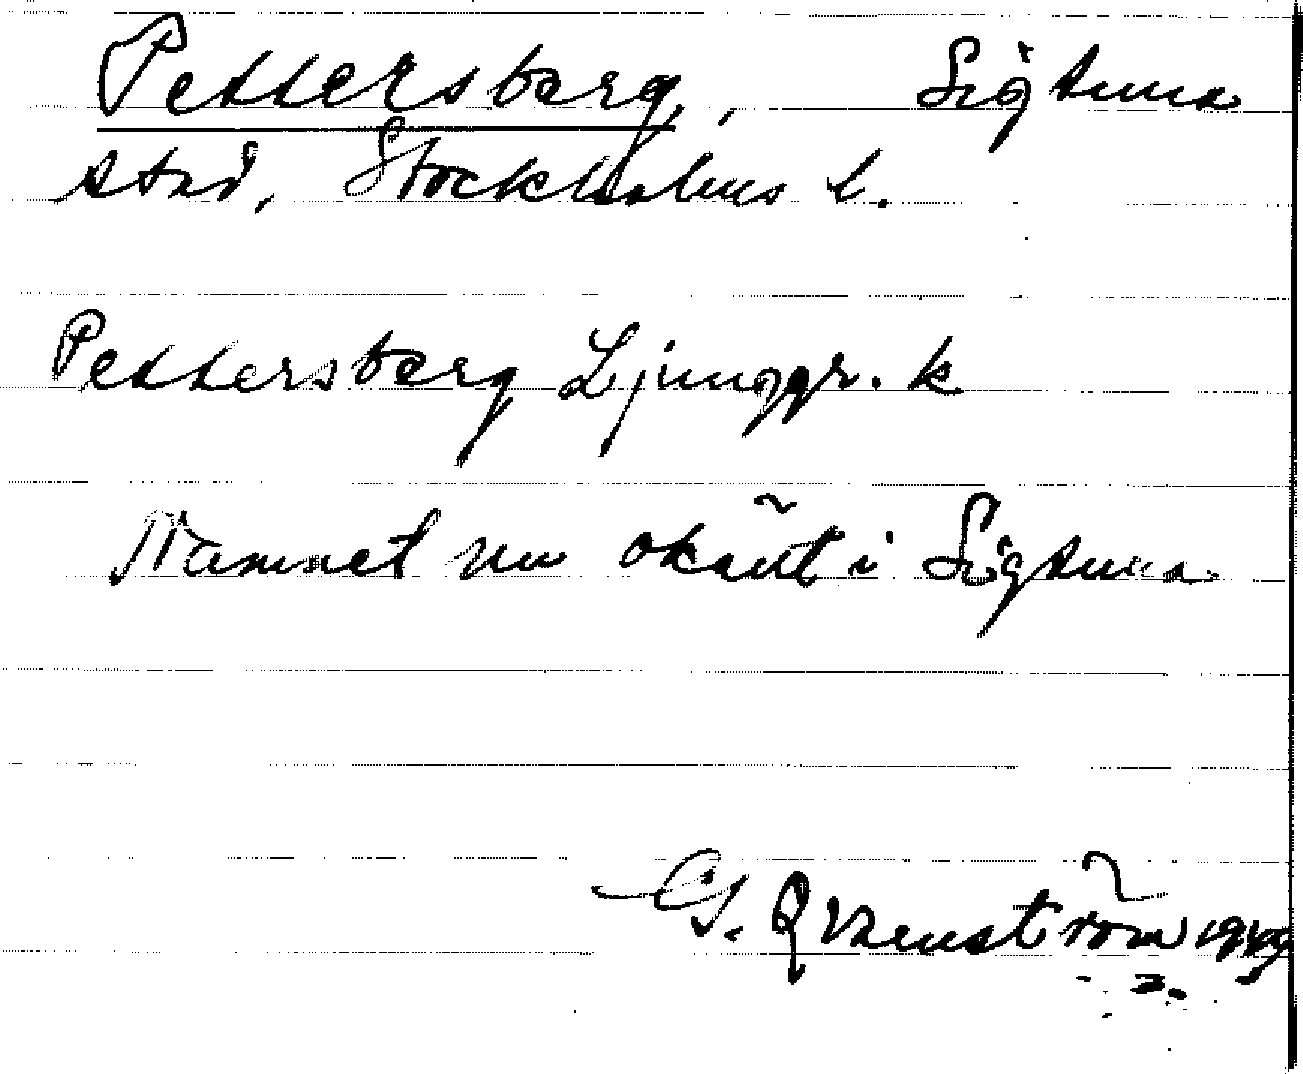 Pettersberg, Sigtuna
stad, Stockholms l.
Pettersberg Ljunggr. k
Namnet nu okänt i Sigtuna
G. Qvarnström